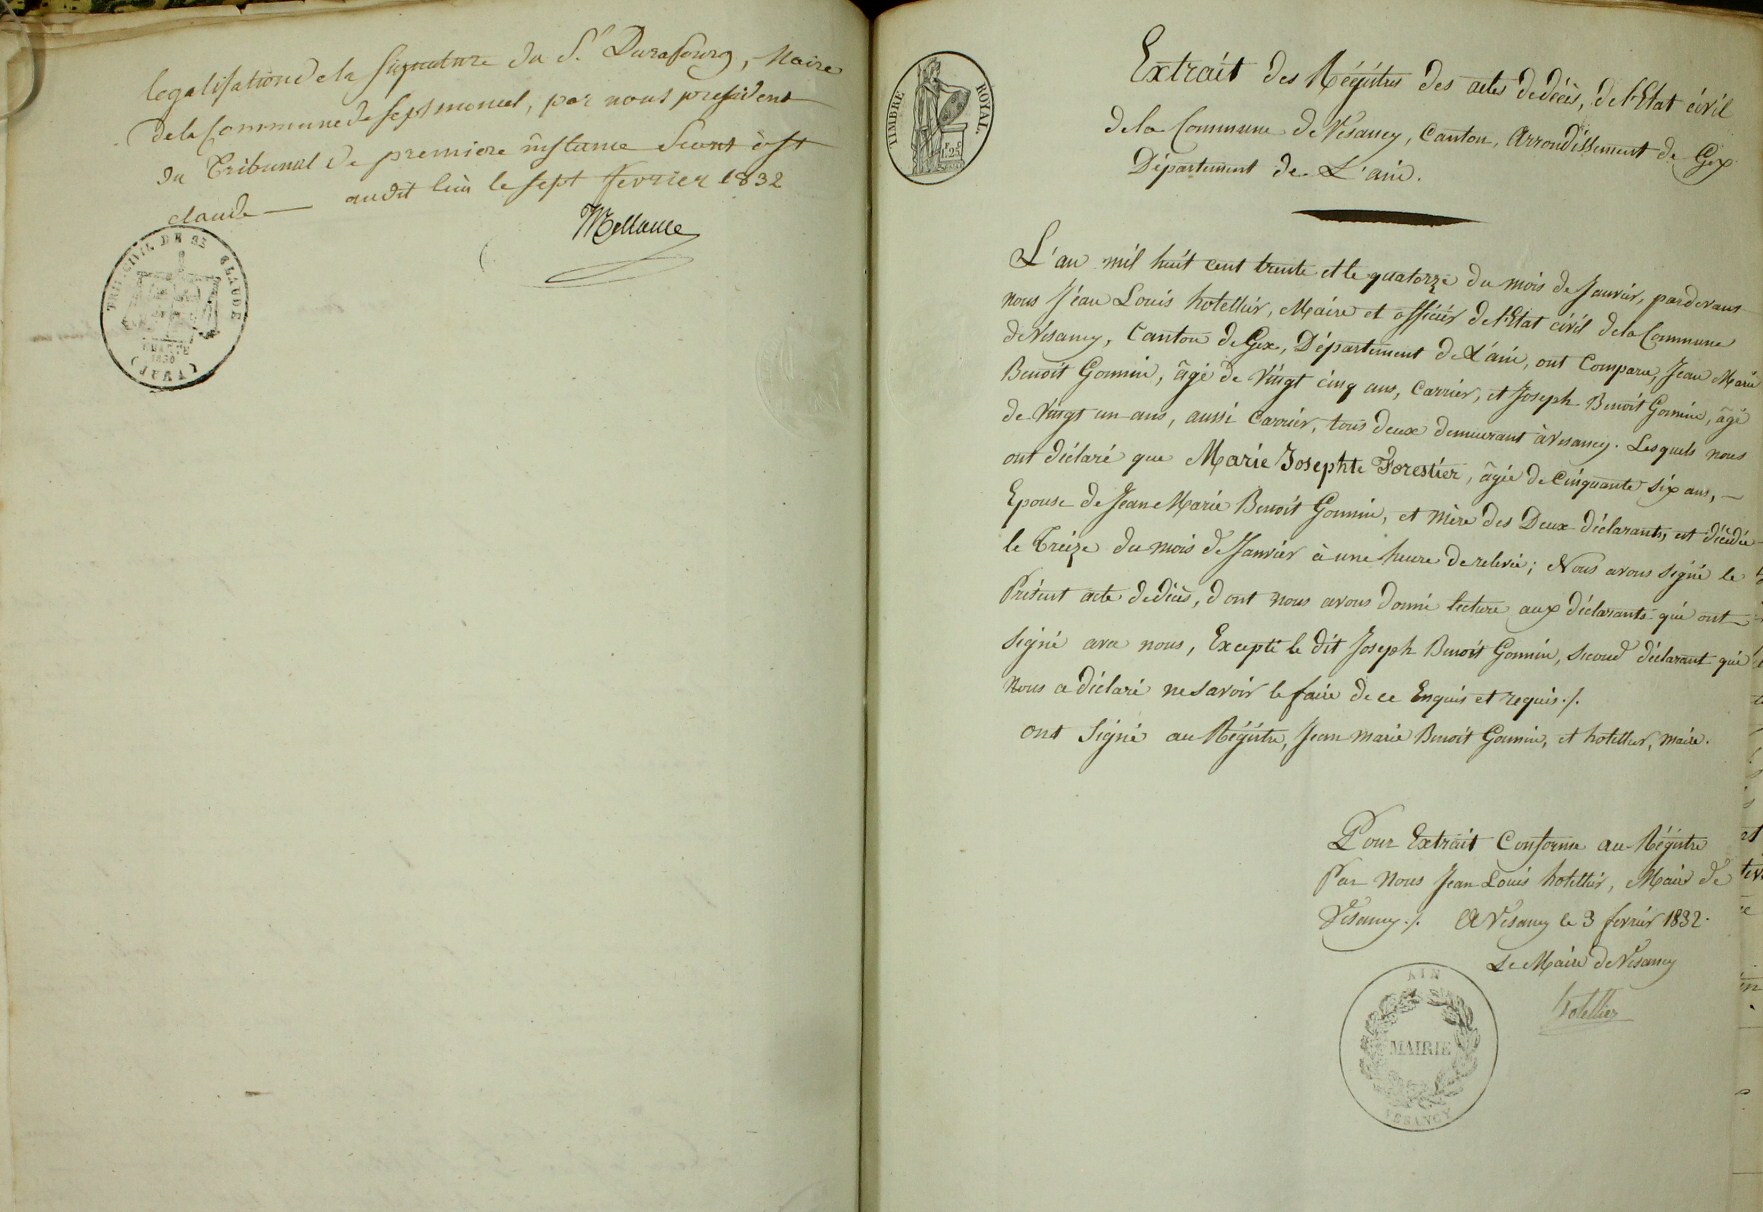 legalisation de la signature du Sr. Durafourg, Maire
de la Commune de Septmoncel, par nous president
du Tribunal de premiere instance Seant à St
claude — audit lieu le sept fevrier 1832
TRIB. CIVIL DE ST CLAUDE
(JURA)
1830
TIMBRE ROYAL
Extrait des Régitres des actes de décès, de l'Etat civil
de la Commune de Vésancy, Canton, Arrondissement de Gex
Département de L'ain.
L'an mil huit cent trente et le quatorze du mois de Janvier, pardevant
nous Jéan Louis hotellier, Maire et officier de l'Etat civil de la Commune
de Vésancy, Canton de Gex, Département de L'ain, ont Comparu, Jean Marie
Benoit Gonnin, âgé de Vingt cinq ans, Carrier, et Joseph Benoit Gonnin, âgé
de Vingt un ans, aussi Carrier, tous deux demeurant à Vésancy. Lesquels nous
ont déclaré que Marie Josephte Forestier, âgée de Cinquante six ans, —
Epouse de Jean Marie Benoit Gonnin, et mère des Deux déclarants, est décédée
le Treize du mois de Janvier à une heure de relevée; Nous avons signé le
Présent acte de décès, dont nous avons donné lecture aux déclarants qui ont
signé avec nous, Excepté le dit Joseph Benoit Gonnin, second déclarant qui
nous a déclaré ne savoir le faire de ce Enquis et requis ./.
ont Signé au Régitre, Jean marie Benoit Gonnin, et hotellier, maire.
Pour Extrait Conforme au Régitre
Par Nous Jean Louis hotellier, Maire de
Vésancy ./. A Vésancy le 3 fevrier 1832.
Le Maire de Vésancy
hotellier
AIN
MAIRIE
VESANCY